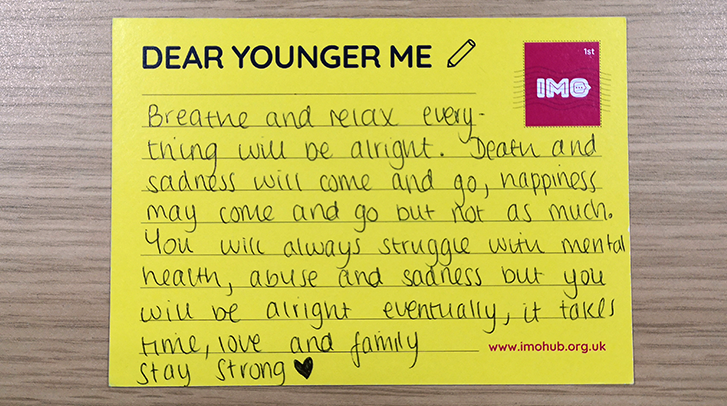 DEAR YOUNGER ME
1st
IMO
Breathe and relax every-
thing will be alright. Death and
sadness will come and go, happiness
may come and go but not as much.
You will always struggle with mental
health, abuse and sadness but you
will be alright eventually, it takes
time, love and family
www.imohub.org.uk
Stay Strong ♥